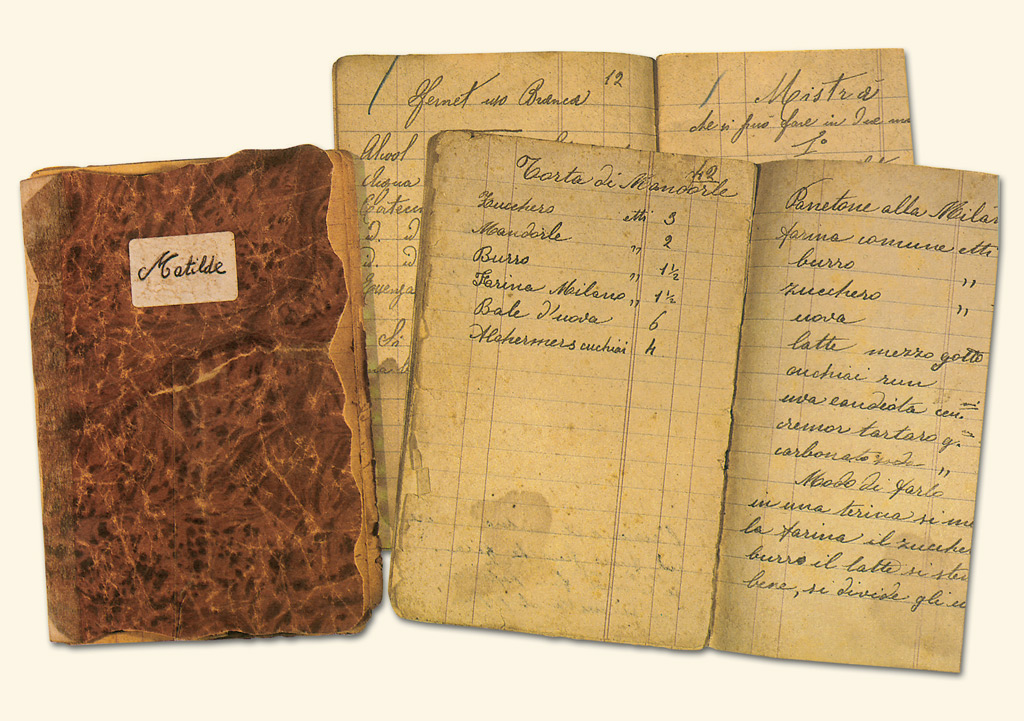 Matilde
12
Fernet uso Branca
Alcool
Acqua
id. id
id. d
Essenza
Si
Mistrà
che si può fare in due
1°
42
Torta di Mandorle
Zucchero etti 3
Mandorle " 2
Burro " 1½
Farina Milano " 1½
Bale d'uova 6
Alchermers cuchiai 4
Panetone alla Milan
farina comune etti
burro "
zucchero "
uova
latte mezzo gotto
cuchiai run
uva candiota
cremor tartaro g.
carbonato soda "
Modo di farlo
in una terina si me
la farina il zuccher
burro il latte si
bene, si divide gli